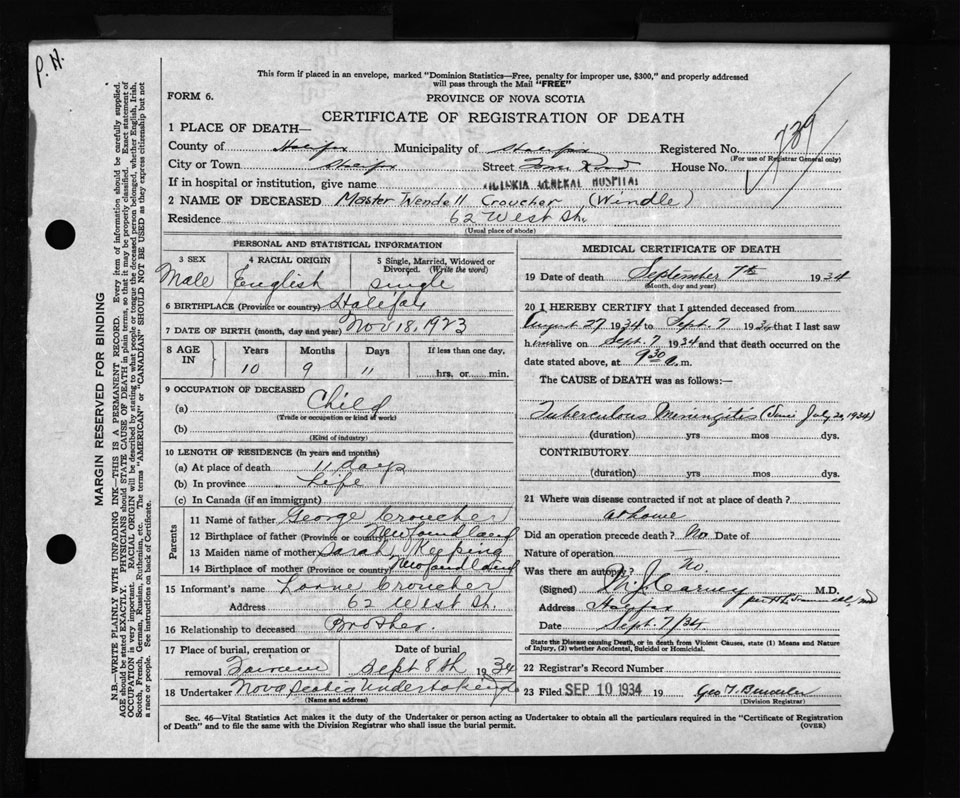 P. H.
This form if placed in an envelope, marked "Dominion Statistics—Free, penalty for improper use, $300," and properly addressed
will pass through the Mail "FREE"
FORM 6.
PROVINCE OF NOVA SCOTIA
CERTIFICATE OF REGISTRATION OF DEATH
1 PLACE OF DEATH—
County of Halifax Municipality of Halifax Registered No. 739
(For use of Registrar General only)
City or Town Halifax Street House No.
If in hospital or institution, give name VICTORIA GENERAL HOSPITAL
2 NAME OF DECEASED Master Wendell Croucher (Windle)
Residence 62 West St.
(Usual place of abode)
PERSONAL AND STATISTICAL INFORMATION
3 SEX 4 RACIAL ORIGIN 5 Single, Married, Widowed or
Divorced. (Write the word)
Male English single
6 BIRTHPLACE (Province or country) Halifax
7 DATE OF BIRTH (month, day and year) Nov 18, 1923
8 AGE IN Years Months Days If less than one day,
10 9 11 hrs. or min.
9 OCCUPATION OF DECEASED
(a) Child
(Trade or occupation or kind of work)
(b)
(Kind of industry)
10 LENGTH OF RESIDENCE (In years and months)
(a) At place of death 11 days
(b) In province Life
(c) In Canada (if an immigrant)
Parents
11 Name of father George Croucher
12 Birthplace of father (Province or country) Newfoundland
13 Maiden name of mother Sarah Keeping
14 Birthplace of mother (Province or country) Newfoundland
15 Informant's name Lorne Croucher
Address 62 West St.
16 Relationship to deceased Brother.
17 Place of burial, cremation or removal Date of burial
Fairview Sept 8th 1934
18 Undertaker Nova Scotia Undertaking Co
(Name and address)
MEDICAL CERTIFICATE OF DEATH
19 Date of death September 7th 1934
(Month, day and year)
20 I HEREBY CERTIFY that I attended deceased from
August 27 1934 to Sept. 7 1934 that I last saw
him alive on Sept. 7 1934 and that death occurred on the
date stated above, at 9 30 a.m.
The CAUSE of DEATH was as follows:—
Tuberculous Meningitis (Since July 20, 1934)
(duration) yrs mos dys.
CONTRIBUTORY
(duration) yrs mos dys.
21 Where was disease contracted if not at place of death?
at home
Did an operation precede death? No Date of
Nature of operation
Was there an autopsy? No.
(Signed) Carney M.D.
Address Halifax
Date Sept. 7/34.
State the Disease causing Death, or in death from Violent Causes, state (1) Means and Nature
of Injury, (2) whether Accidental, Suicidal or Homicidal.
22 Registrar's Record Number
23 Filed SEP 10 1934 19 Geo T.
(Division Registrar)
Sec. 46—Vital Statistics Act makes it the duty of the Undertaker or person acting as Undertaker to obtain all the particulars required in the "Certificate of Registration
of Death" and to file the same with the Division Registrar who shall issue the burial permit. (OVER)
MARGIN RESERVED FOR BINDING
N.B.—WRITE PLAINLY WITH UNFADING INK—THIS IS A PERMANENT RECORD. Every item of information should be carefully supplied.
AGE should be stated EXACTLY. PHYSICIANS should STATE CAUSE OF DEATH in plain terms, so that it may be properly classified. Exact statement of
OCCUPATION is very important. RACIAL ORIGIN will be described by stating to what people or tongue the deceased person belonged, whether English, Irish,
Scotch, French, German, Russian, Ruthenian, etc. The terms "AMERICAN" or "CANADIAN" SHOULD NOT BE USED as they express citizenship but not
a race or people. See instructions on back of Certificate.